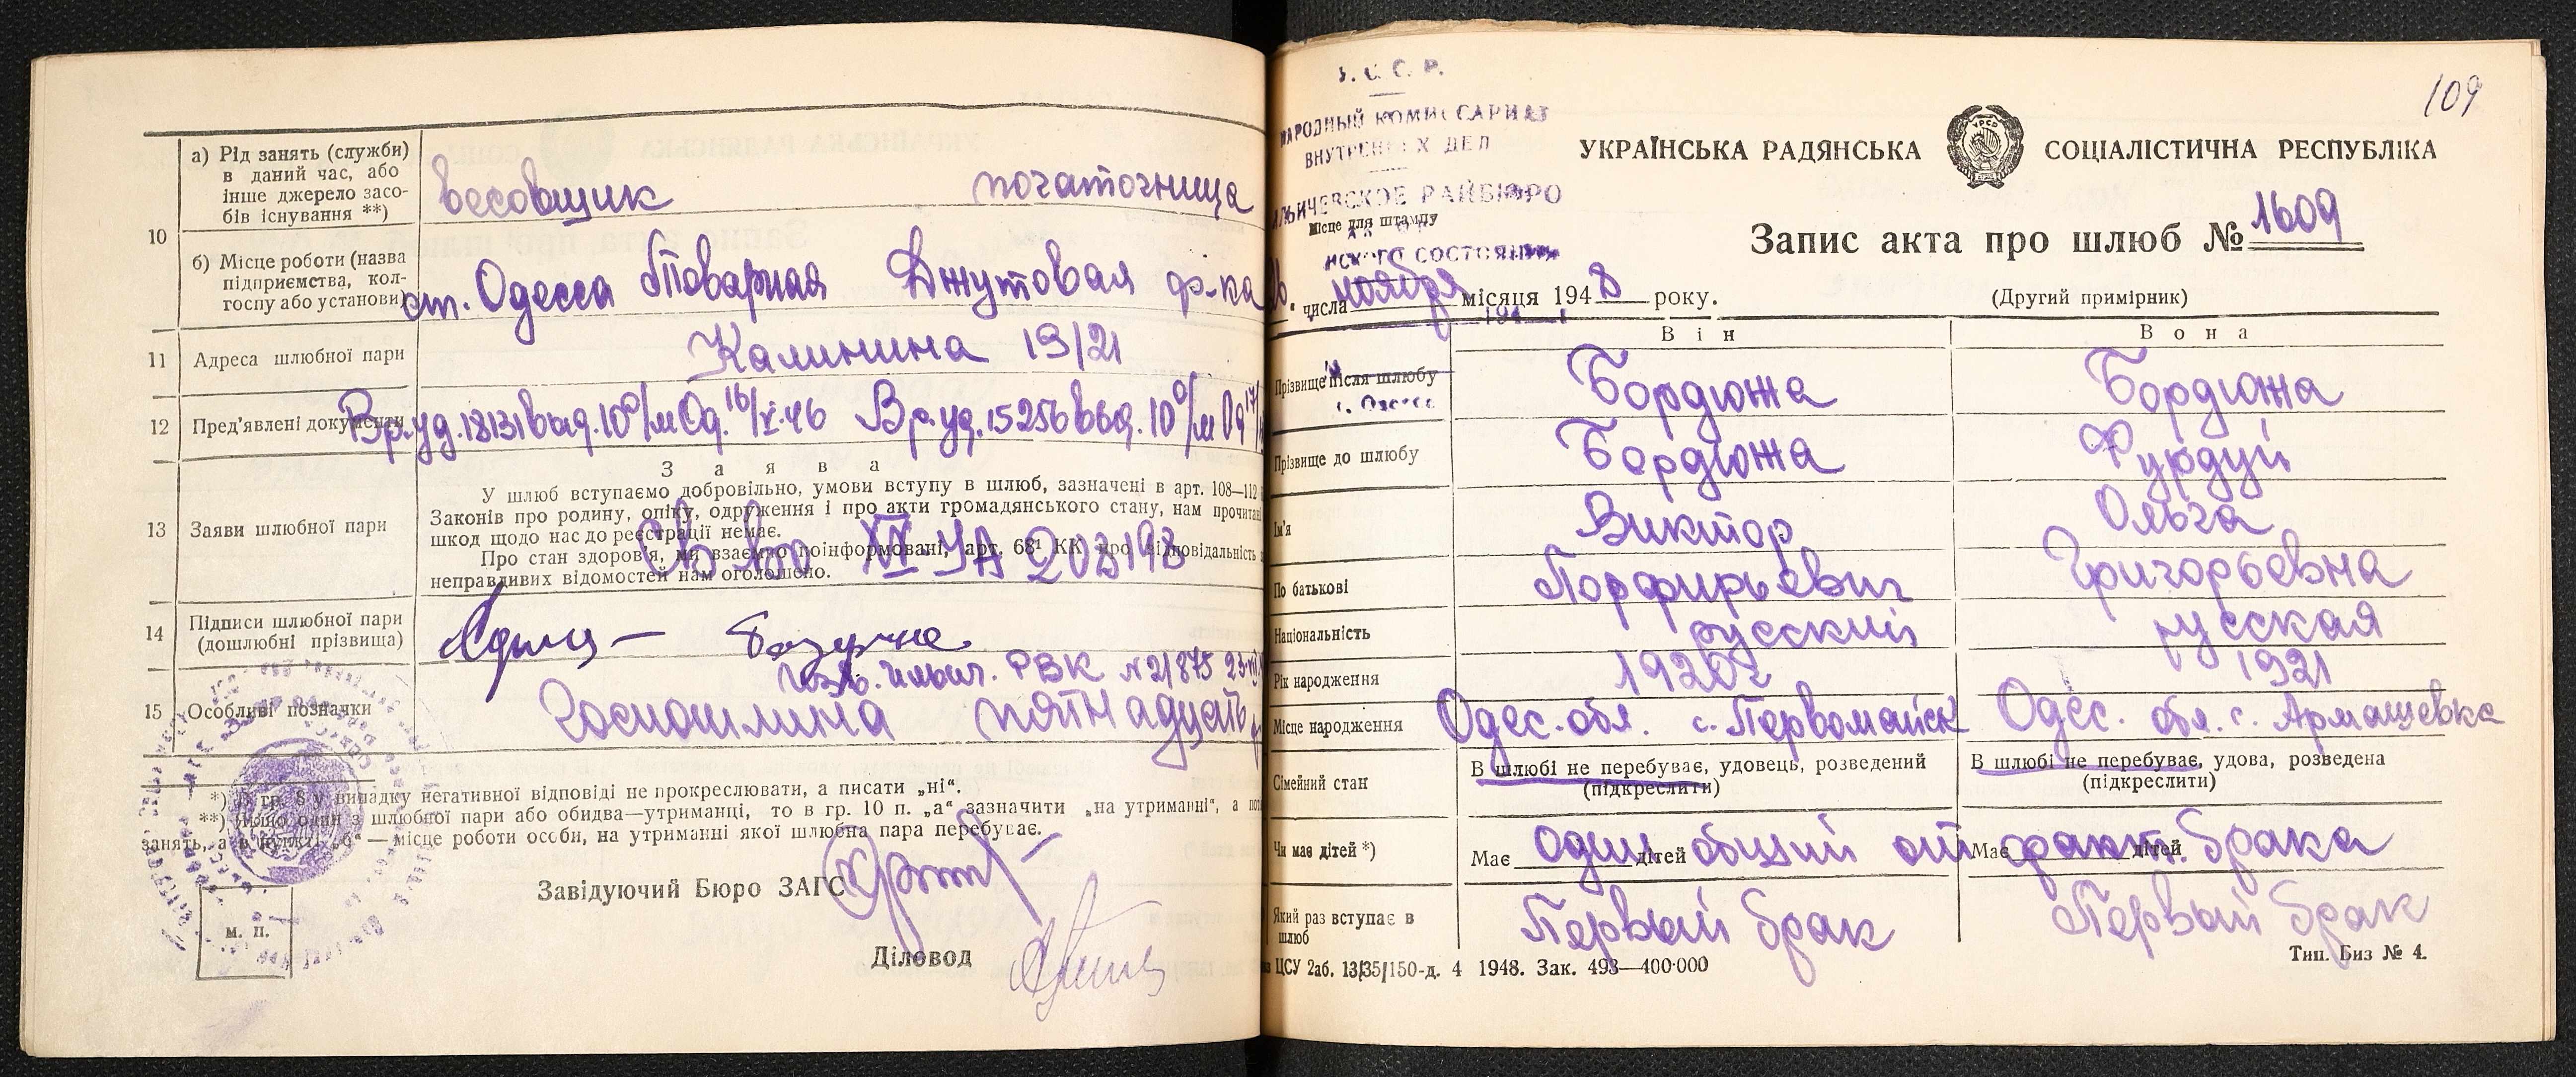 а) Рід занять (служби)
в даний час, або
інше джерело засо-
бів існування **)
весовщик початочница
10
б) Місце роботи (назва
підприємства, кол-
госпу або установи)
ст. Одесса Товарная Джутовая ф-ка
11 Адреса шлюбної пари Калинина 19/21
12 Пред'явлені документи Вр.уд.18131 выд. 10 о/м Од. 16/X-46 Вр.уд.15256 выд. 10 о/м Од 17/
13 Заяви шлюбної пари
З а я в а
У шлюб вступаємо добровільно, умови вступу в шлюб, зазначені в арт. 108—112
Законів про родину, опіку, одруження і про акти громадянського стану, нам прочитані
шкод щодо нас до реєстрації немає.
Про стан здоров'я, ми взаємно поінформовані, арт. 68¹ КК про відповідальність
неправдивих відомостей нам оголошено.
Св-во УА 203198
14 Підписи шлюбної пари
(дошлюбні прізвища)
РВК № 21875 23
15 Особливі позначки Госпошлина пятнадцать
*) В гр. 8 у випадку негативної відповіді не прокреслювати, а писати „ні“.
**) Якщо один з шлюбної пари або обидва—утриманці, то в гр. 10 п. „а“ зазначити „на утриманні“, а
занять, а в пункті „б“ — місце роботи особи, на утриманні якої шлюбна пара перебуває.
Завідуючий Бюро ЗАГС
м. п.
Діловод
109
У. С. С. Р.
НАРОДНЫЙ КОМИССАРИАТ
ВНУТРЕННИХ ДЕЛ
ИЛЬИЧЕВСКОЕ РАЙБЮРО
Місце для штампу
СОСТОЯНИЯ
194
г. Одесса
УКРАЇНСЬКА РАДЯНСЬКА СОЦІАЛІСТИЧНА РЕСПУБЛІКА
УРСР
Запис акта про шлюб № 1609
26. числа ноября місяця 1948 року.
(Другий примірник)
Він Вона
Прізвище після шлюбу Бордюжа Бордюжа
Прізвище до шлюбу Бордюжа Фурдуй
Ім'я Виктор Ольга
По батькові Порфирьевич Григорьевна
Національність русский русская
Рік народження 1920г 1921
Місце народження Одес. обл. с. Первомайск Одес. обл. с. Армашевка
Сімейний стан
В шлюбі не перебуває, удовець, розведений
(підкреслити)
В шлюбі не перебуває, удова, розведена
(підкреслити)
Чи має дітей *) Має один дітей общий от Має факт. дітей брака
Який раз вступає в
шлюб
Первый брак Первый брак
ЦСУ 2аб. 13/35/150-д. 4 1948. Зак. 493—400·000
Тип. Биз № 4.